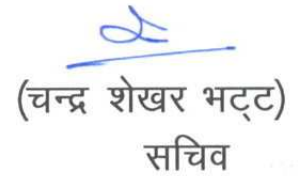 (चन्द्र शेखर भट्ट)
सचिव